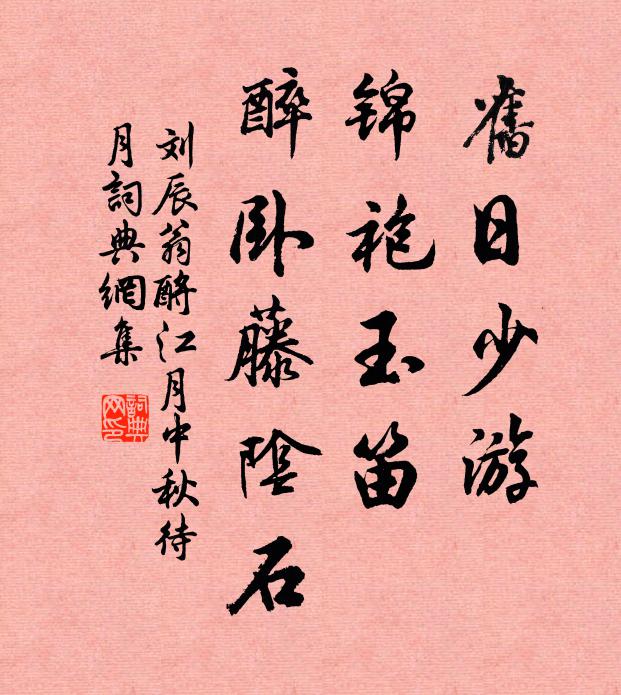 舊日少游
锦袍玉笛
醉卧藤陰石
刘辰翁酹江月中秋待
月詞典網集
詞典网印